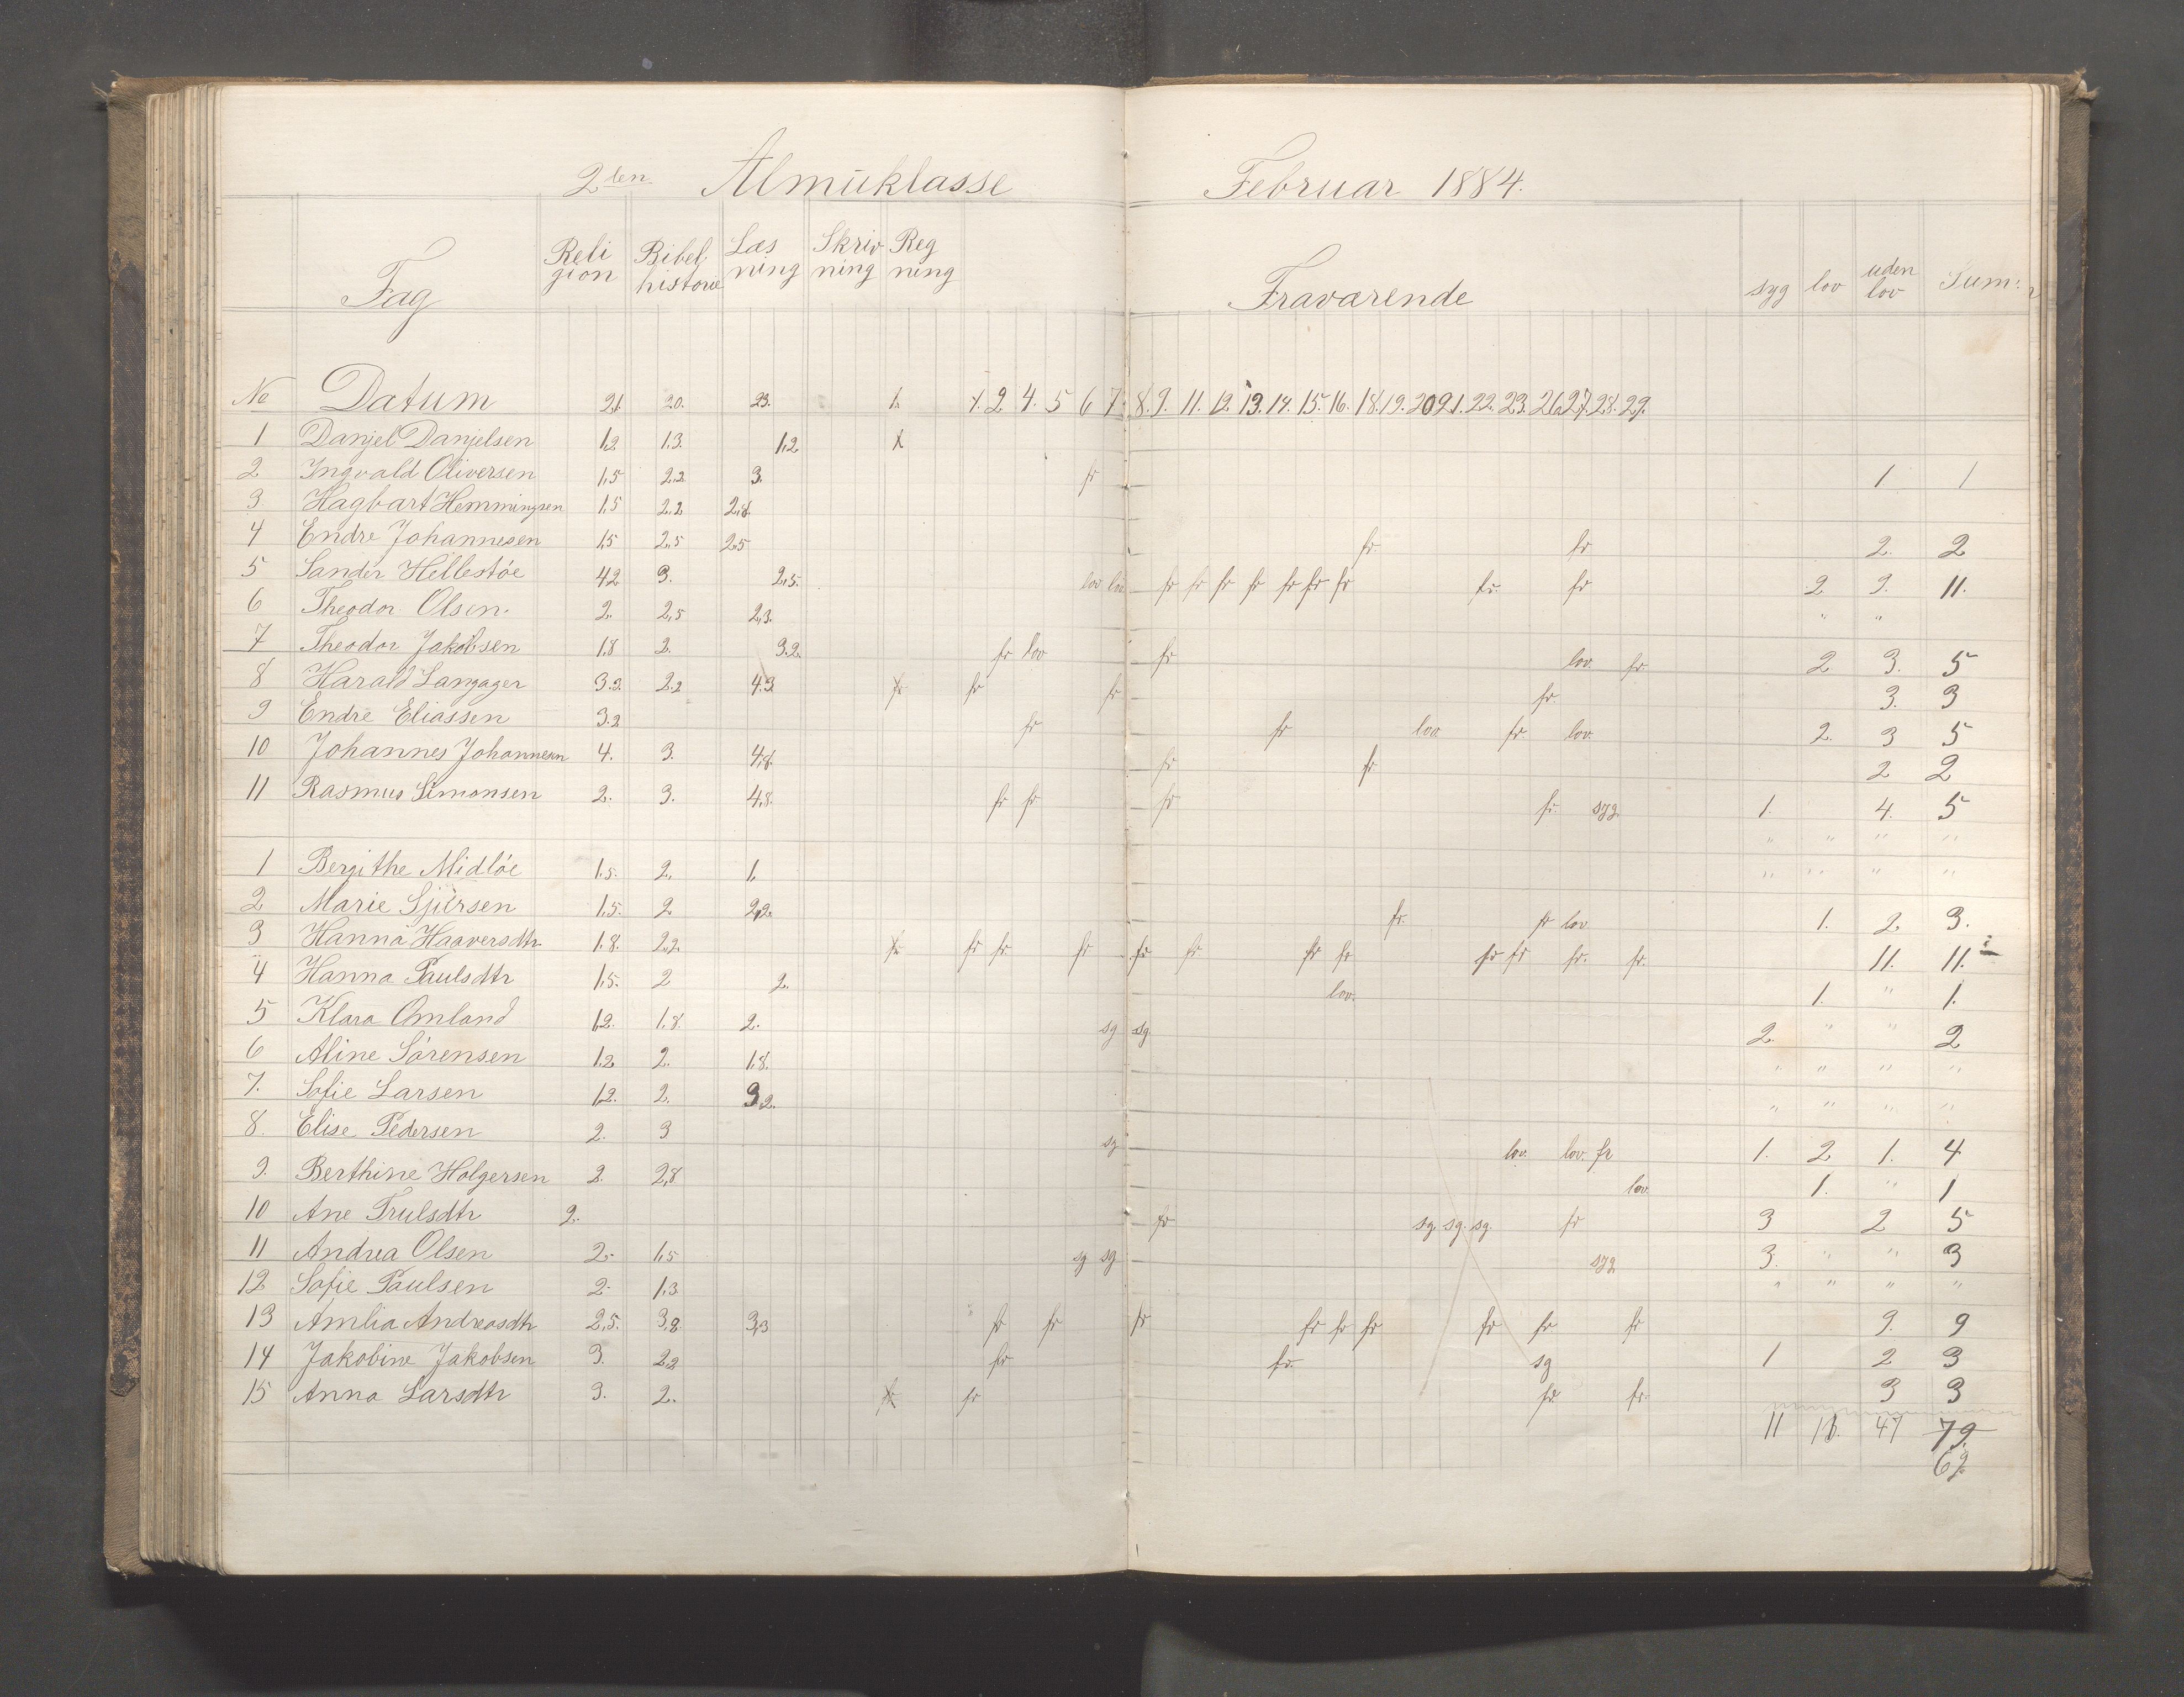 2den Almuklasse Februar 1884.
Fag Religion Bibelhistorie Læsning Skrivning Regning Fraværende syg lov uden lov Sum
No Datum 21. 20. 23. 1. 1. 2. 4. 5 6 7. 8. 9. 11. 12. 13. 14. 15. 16. 18. 19. 20 21. 22. 23. 26. 27. 28. 29.
1 Danjel Danjelsen 1,2 1,3. 1,2
2 Ingvald Oliversen 1,5 2,2. 3. fr 1 1
3 Hagbart Hemmingsen 1,5 2,2 2,8.
4 Endre Johannesen 1,5 2,5 2,5 fr fr 2. 2
5 Sander Hellestöe 4,2 3. 2,5. lov lov fr fr fr fr fr fr fr fr. fr 2 9. 11.
6 Theodor Olsen. 2. 2,5 2,3. " "
7 Theodor Jakobsen 1,8 2. 3.2. fr lov fr lov. fr. 2 3. 5
8 Harald Langager 3.2. 2.2 4.3 fr fr fr fr. 3. 3
9 Endre Eliassen 3.2 fr fr lov. fr. lov. 2. 3 5
10 Johannes Johannesen 4. 3. 4,8. fr fr 2 2
11 Rasmus Simonsen 2. 3. 4,8. fr fr fr fr. syg. 1. 4. 5
" " " "
1 Bergithe Midlöe 1.5. 2. 1. " " " "
2 Marie Sjúrsen 1,5. 2 2,2. fr. fr lov 1. 2 3.
3 Hanna Haaversdtr 1.8. 2.2. fr fr fr fr fr fr fr fr fr fr fr. fr. 11. 11.
4 Hanna Paulsdtr 1,5. 2 2. lov. 1. " 1.
5 Klara Omland 1,2. 1,8. 2. sg sg. 2. " " 2
6 Aline Sörensen 1,2 2. 1,8. " " " "
7. Sofie Larsen 1,2. 2. 3,2. " " " "
8. Elise Pedersen 2. 3 sg lov. lov. fr 1. 2 1. 4
9. Berthine Holgersen 2. 2,8 lov. 1. " 1
10 Ane Trulsdtr 2. fr sg. sg. sg. fr 3 2 5
11 Andrea Olsen 2. 1,5 sg sg. syg 3. " " 3
12 Sofie Paulsen 2. 1,3 " " " "
13 Amlia Andreasdtr 2,5. 3,8. 3,3 fr fr fr fr fr fr fr fr fr 9. 9
14 Jakobine Jakobsen 3. 2,2 fr fr. sg 1 2 3
15 Anna Larsdtr 3. 2. fr fr fr. fr. 3 3
11 47 79.
69.